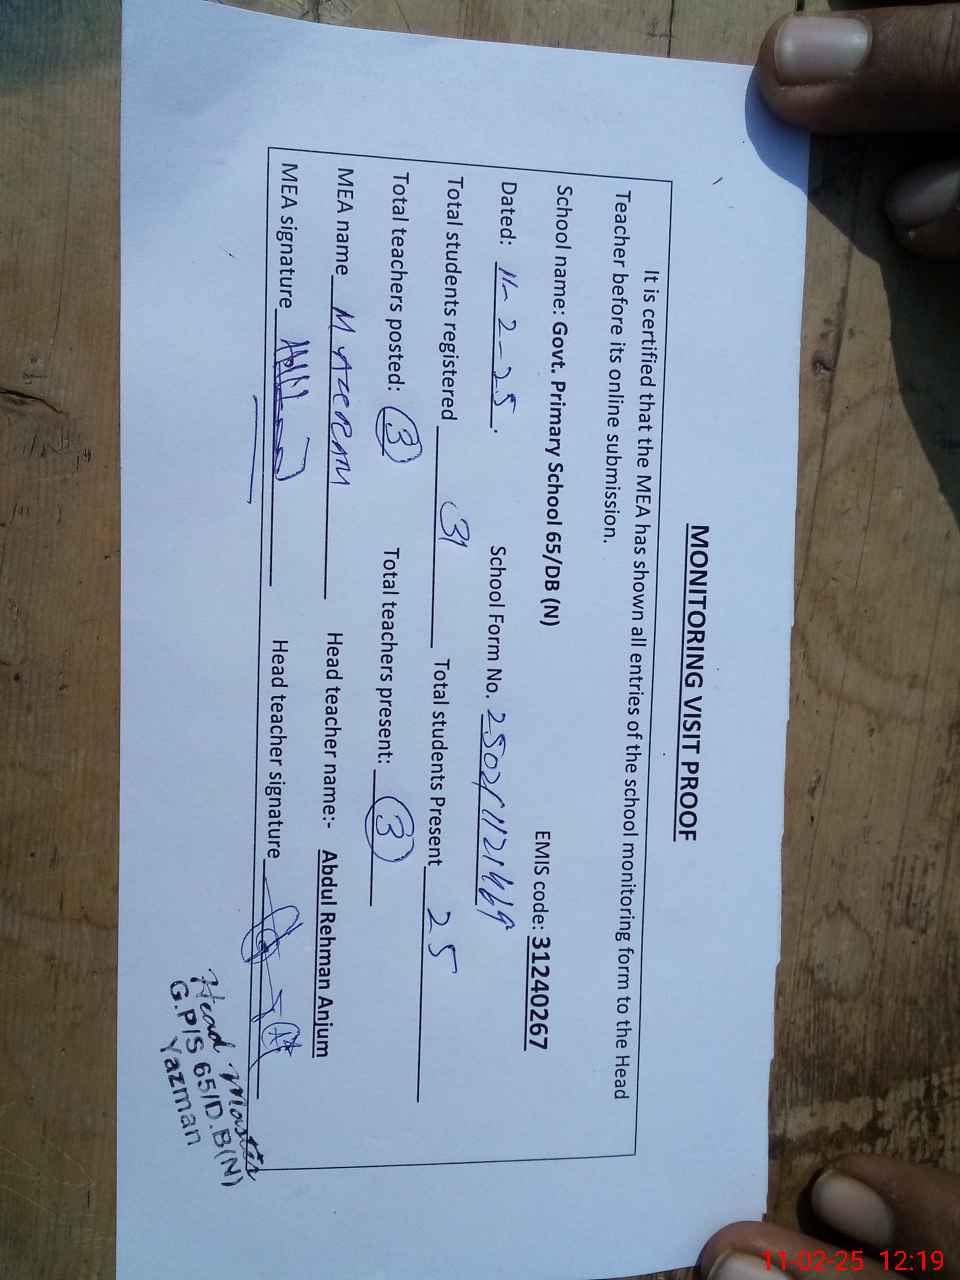 MONITORING VISIT PROOF
It is certified that the MEA has shown all entries of the school monitoring form to the Head
Teacher before its online submission.
School name: Govt. Primary School 65/DB (N) EMIS code: 31240267
Dated: 11-2-25. School Form No. 2502111211469
Total students registered 31 Total students Present 25
Total teachers posted: 3 Total teachers present: 3
MEA name M Head teacher name:- Abdul Rehman Anjum
MEA signature Head teacher signature
Head Master
G.P/S 65/D.B(N)
Yazman
11-02-25 12:19